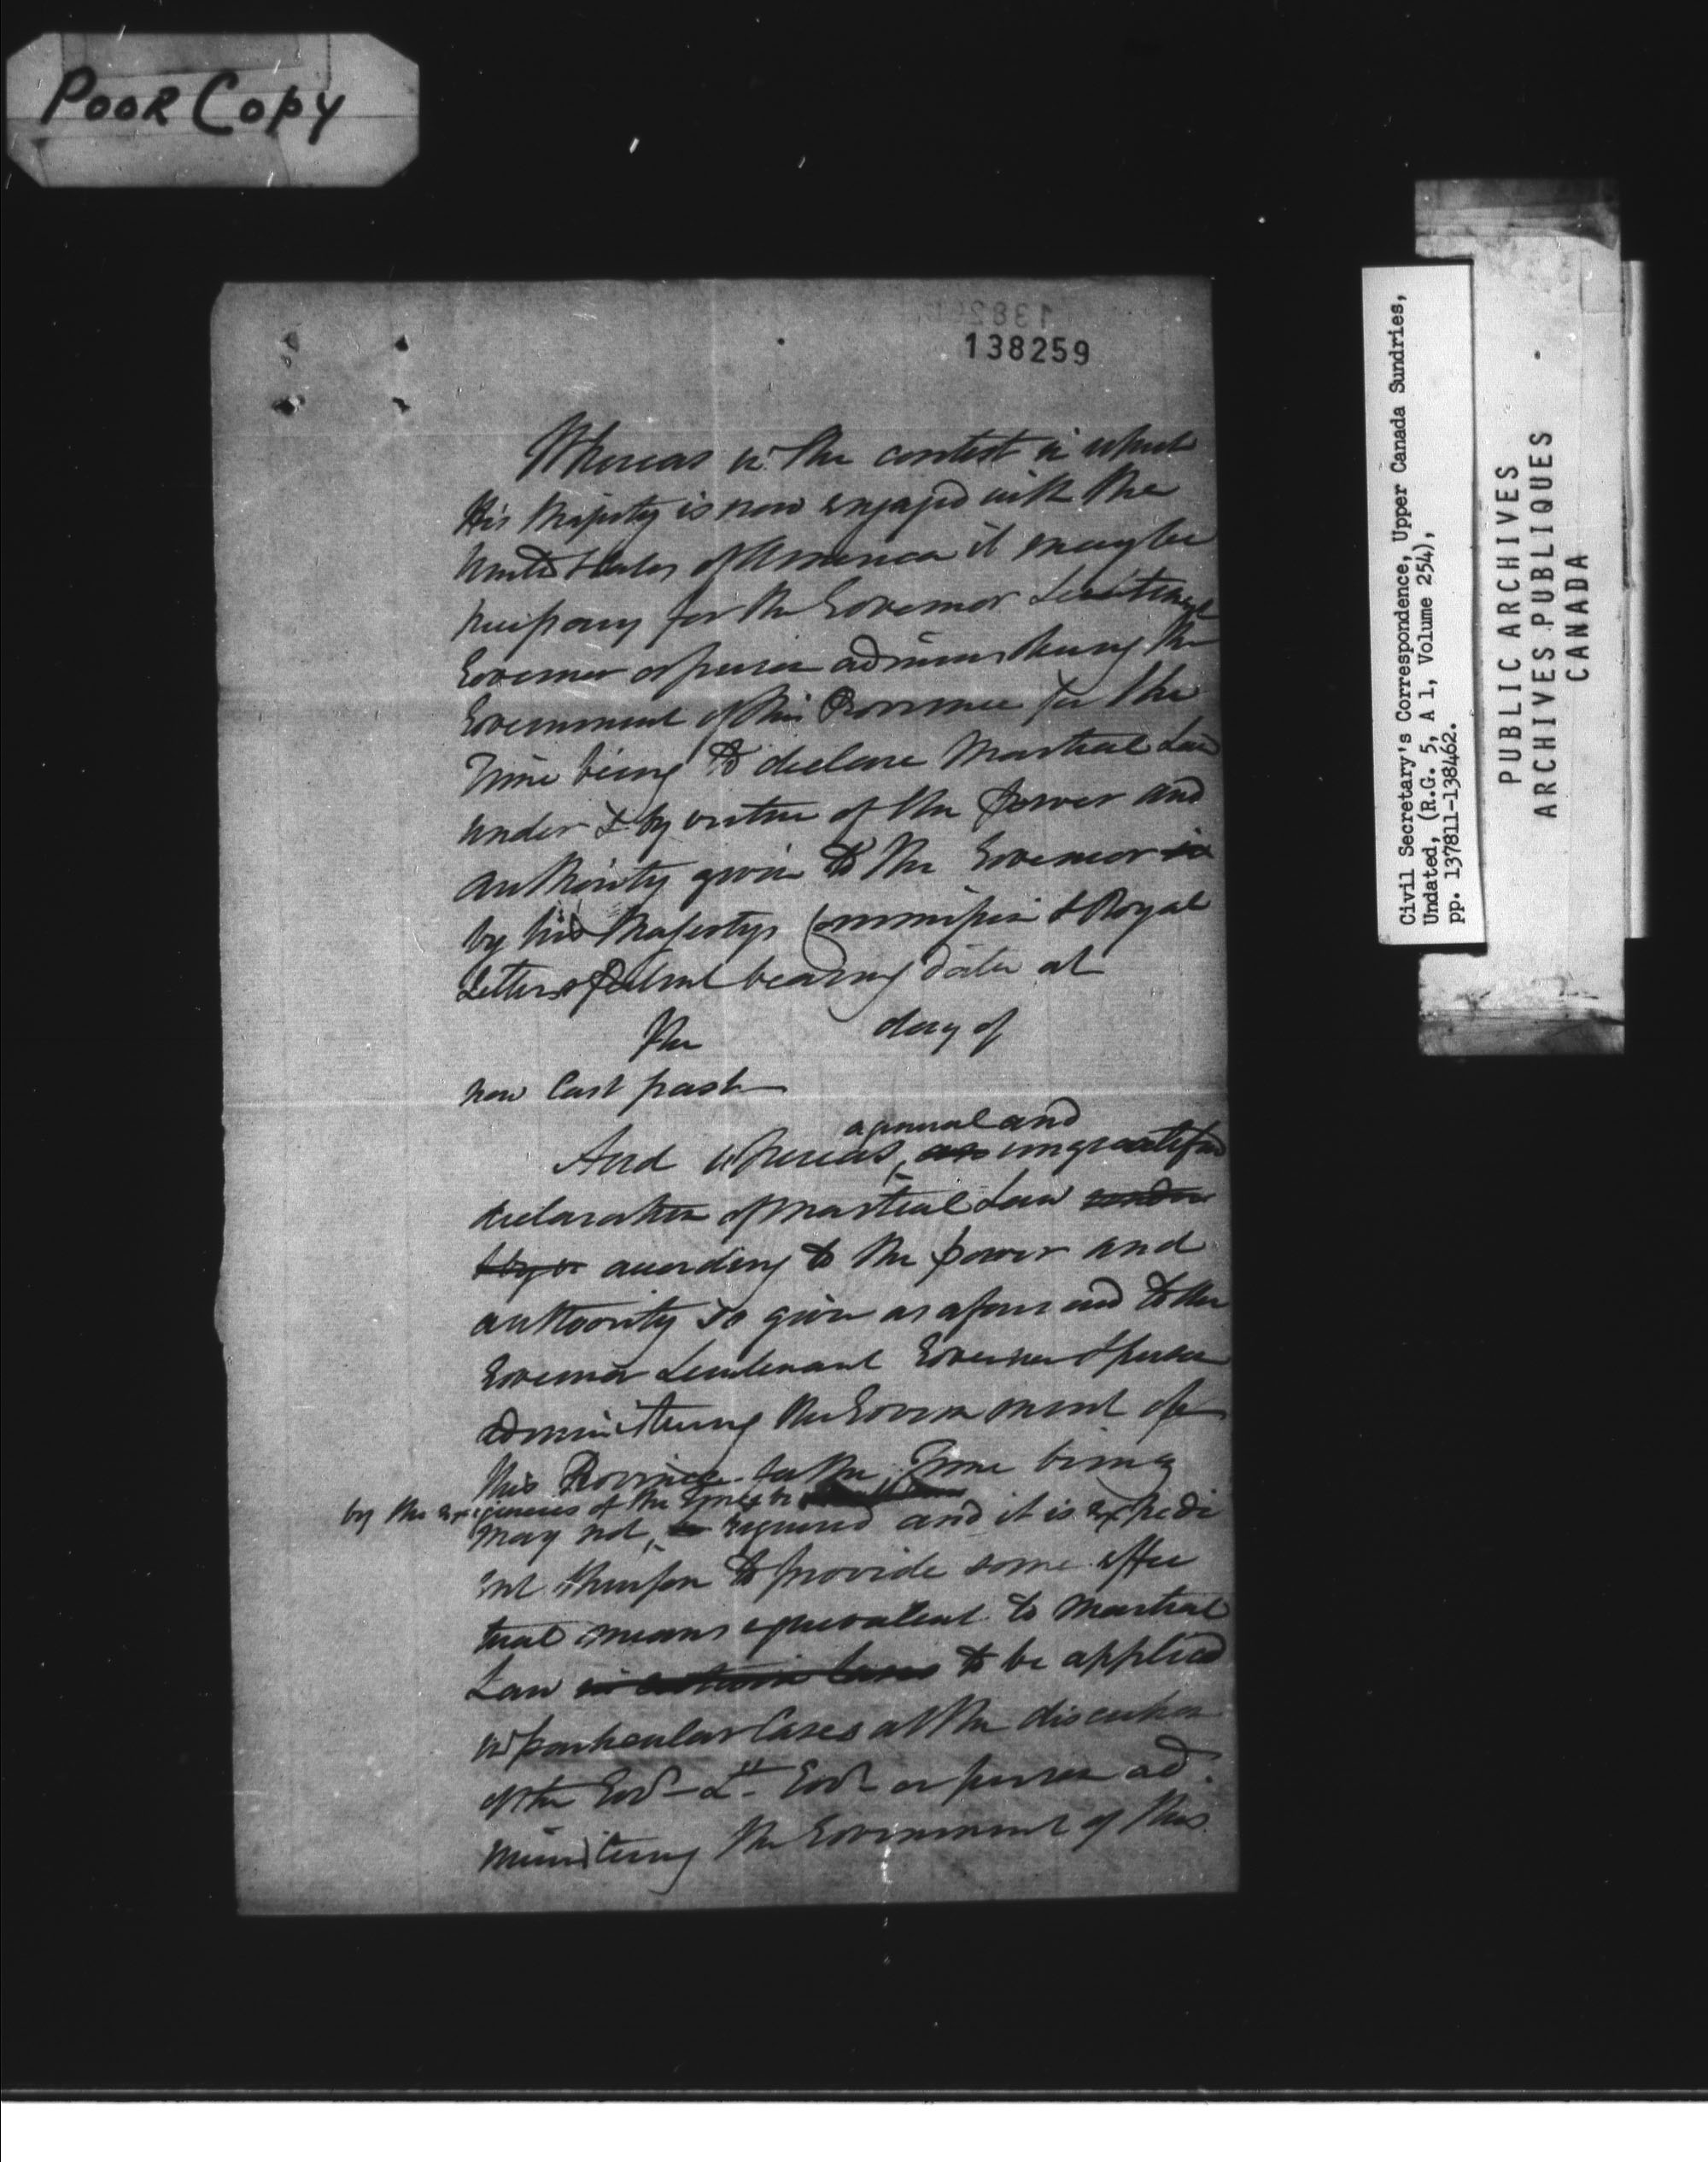 POOR COPY
138259
Whereas in the contest in which
His Majesty is now engaged with the
United States of America it may be
necessary for the Governor Lieutenant
Governor or person administering the
Government of this Province for the
Time being to declare Martial Law
under & by virtue of the power and
authority given to the Governor in
by his Majestys Commission & Royal
Letters patent bearing date at
the day of
now last past
a general and
And whereas, an unqualified
declaration of Martial Law under
& by vi according to the power and
authority so given as aforesaid to the
Governor Lieutenant Governor or person
administering the Government of
this Province for the Time being
by the exigencies of the Times be
may not, be required and it is expedi
ent therefore to provide some effec
tual means equivalent to Martial
Law in certain Cases to be applied
in particular Cases at the discretion
of the Govr Lt. Govr or person ad
ministering the Government of this
Civil Secretary's Correspondence, Upper Canada Sundries,
Undated, (R.G. 5, A 1, Volume 254),
pp. 137811-138462.
PUBLIC ARCHIVES
ARCHIVES PUBLIQUES
CANADA